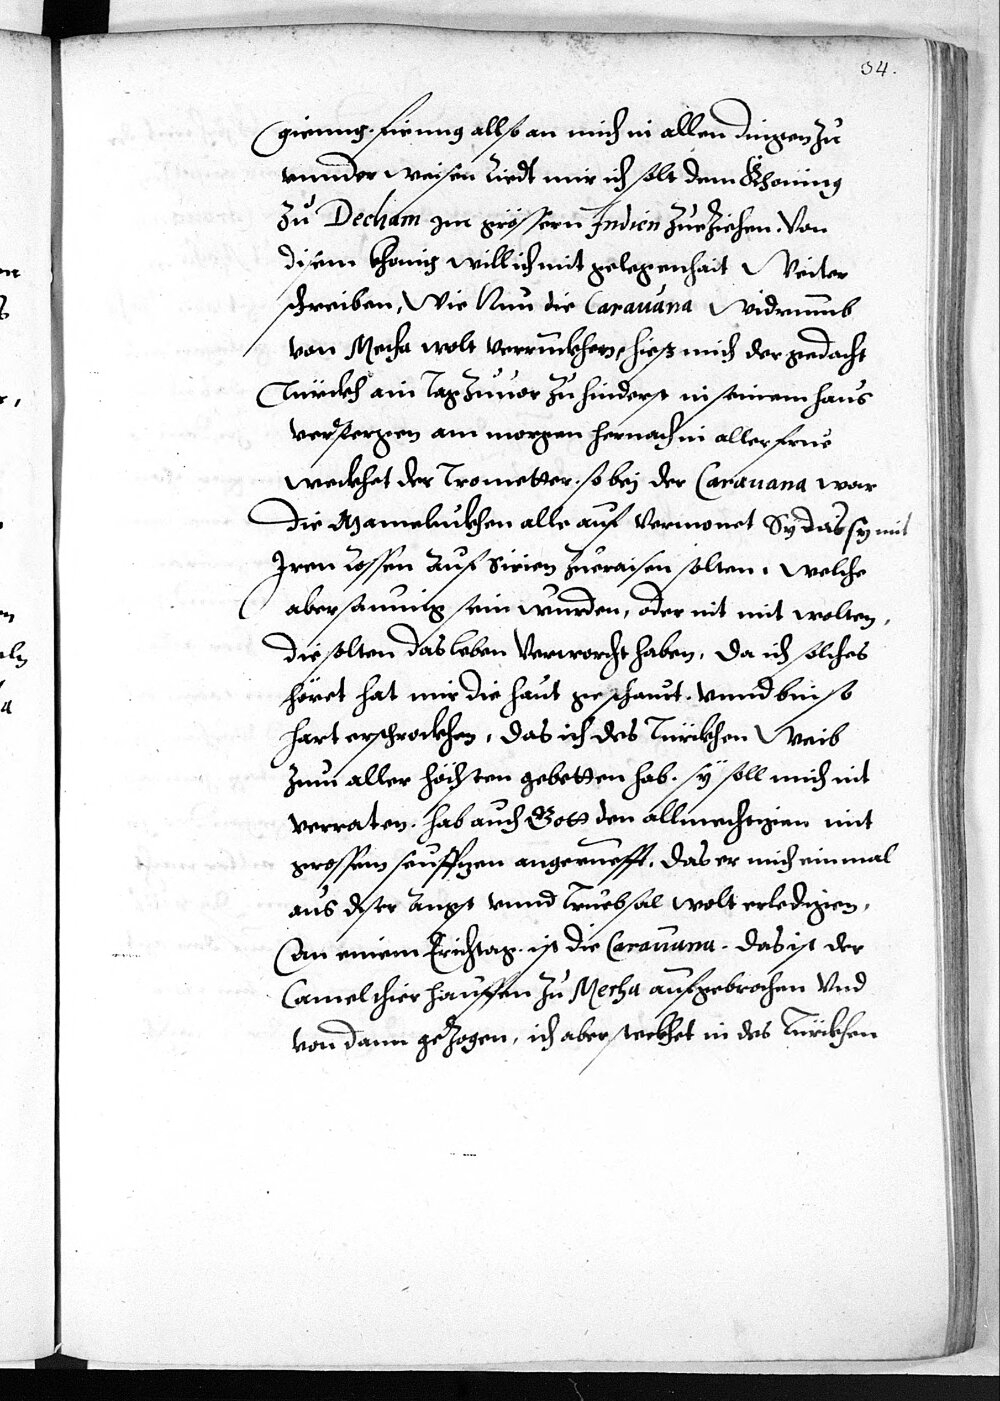 34.
gieng. fieng also an mich in allen dingen zu
vnnderweisen Riedt mir ich solt dem Khonig
zu Decham im grössern Indien zueziehen. Von
disem khonig will ich mit gelegenhait Weiter
schreiben, Wie Nun die Carauana Widrumb
von Mecha wolt verruckhen, hieß mich der gedacht
Türckh ain Tag zuuor zu hinderst in seinem haus
verstergen am morgen hernach in aller frue
weckhet der Trometter. so bej der Carauana war
die Mamelukhen alle auf vermonet Sy das sy mit
Iren Rossen auf Sirien zueraisen solten. welche
aber saumig sein wurden, oder nit mit wolten,
die solten das leben verworcht haben. da ich solches
höret hat mir die haut geschaurt. vnnd bin so
hart erschrockhen, das ich des Türckhen Weib
zum aller höchsten gebetten hab. sy soll mich nit
verraten. hab auch Gott den allmechtigen mit
grossem seufftzen angeruefft. das er mich einmal
aus diser Angst vnnd Truebsal wolt erledigen.
An einem Erichtag. ist die Carauana. das ist der
Camelthier hauffen zu Mecha aufgebrochen vnd
von dann gezogen, ich aber steckhet in des Türckhen